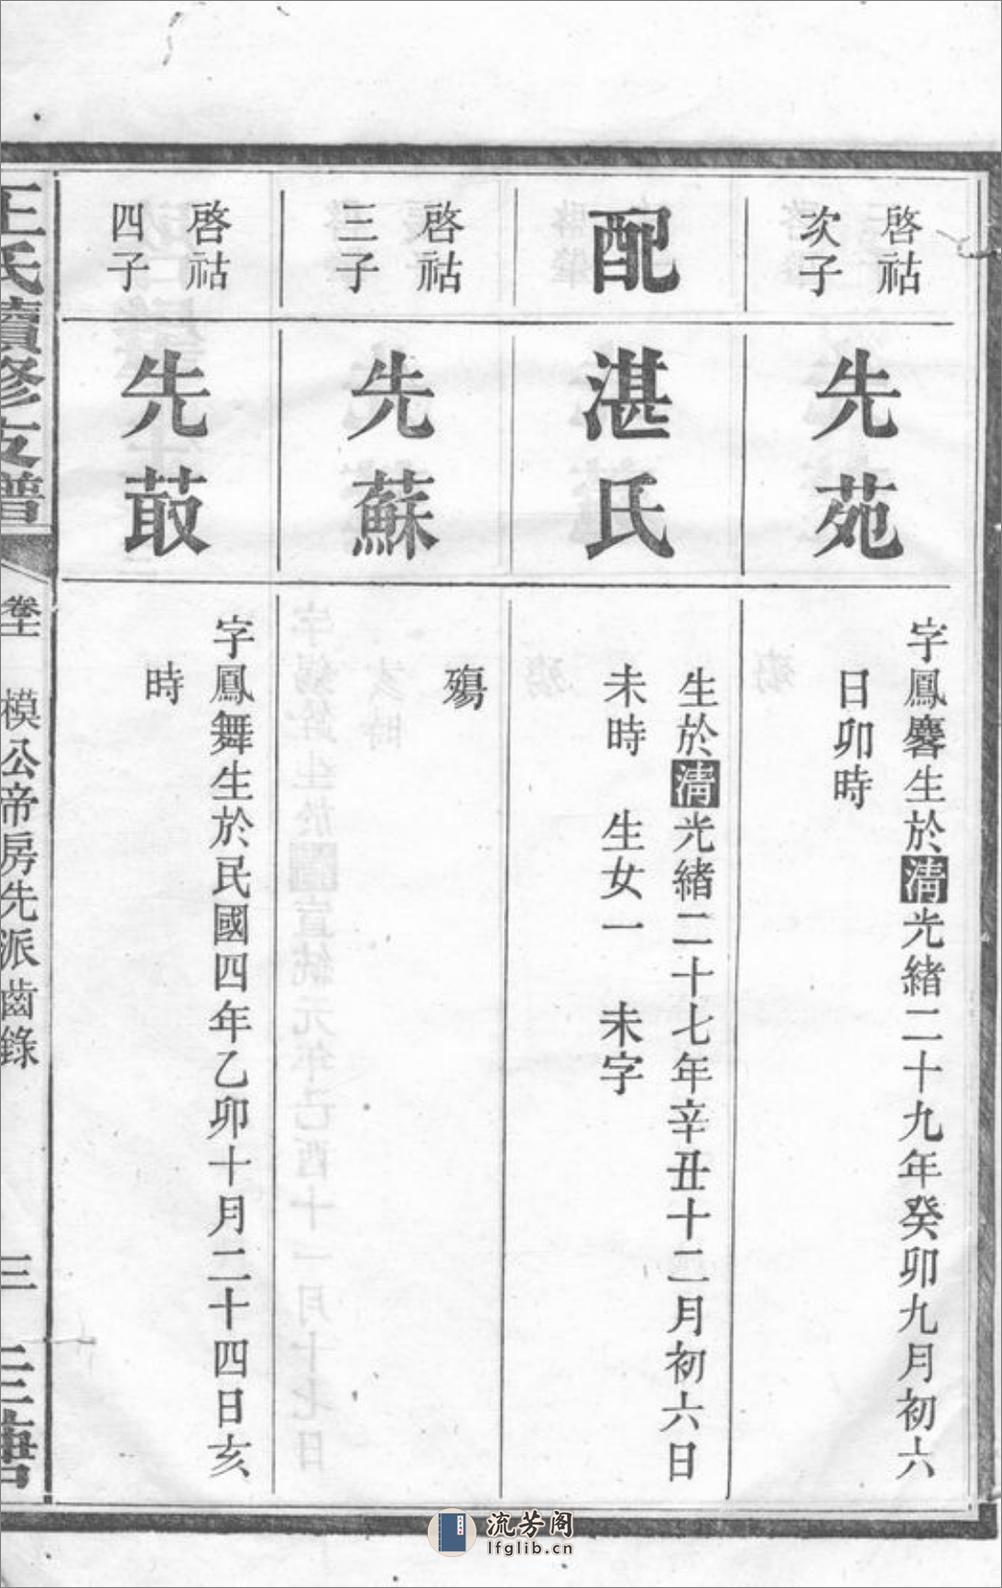 啓祜
次子
先苑
字鳳麐生於清光緒二十九年癸卯九月初六
日卯時
配
湛氏
生於清光緒二十七年辛丑十二月初六日
未時　生女一　未字
啓祜
三子
先蘇
殤
啓祜
四子
先菆
字鳳舞生於民國四年乙卯十月二十四日亥
時
王氏續修支譜
模公帝房先派齒錄
三
三槐
流芳阁
lfglib.cn